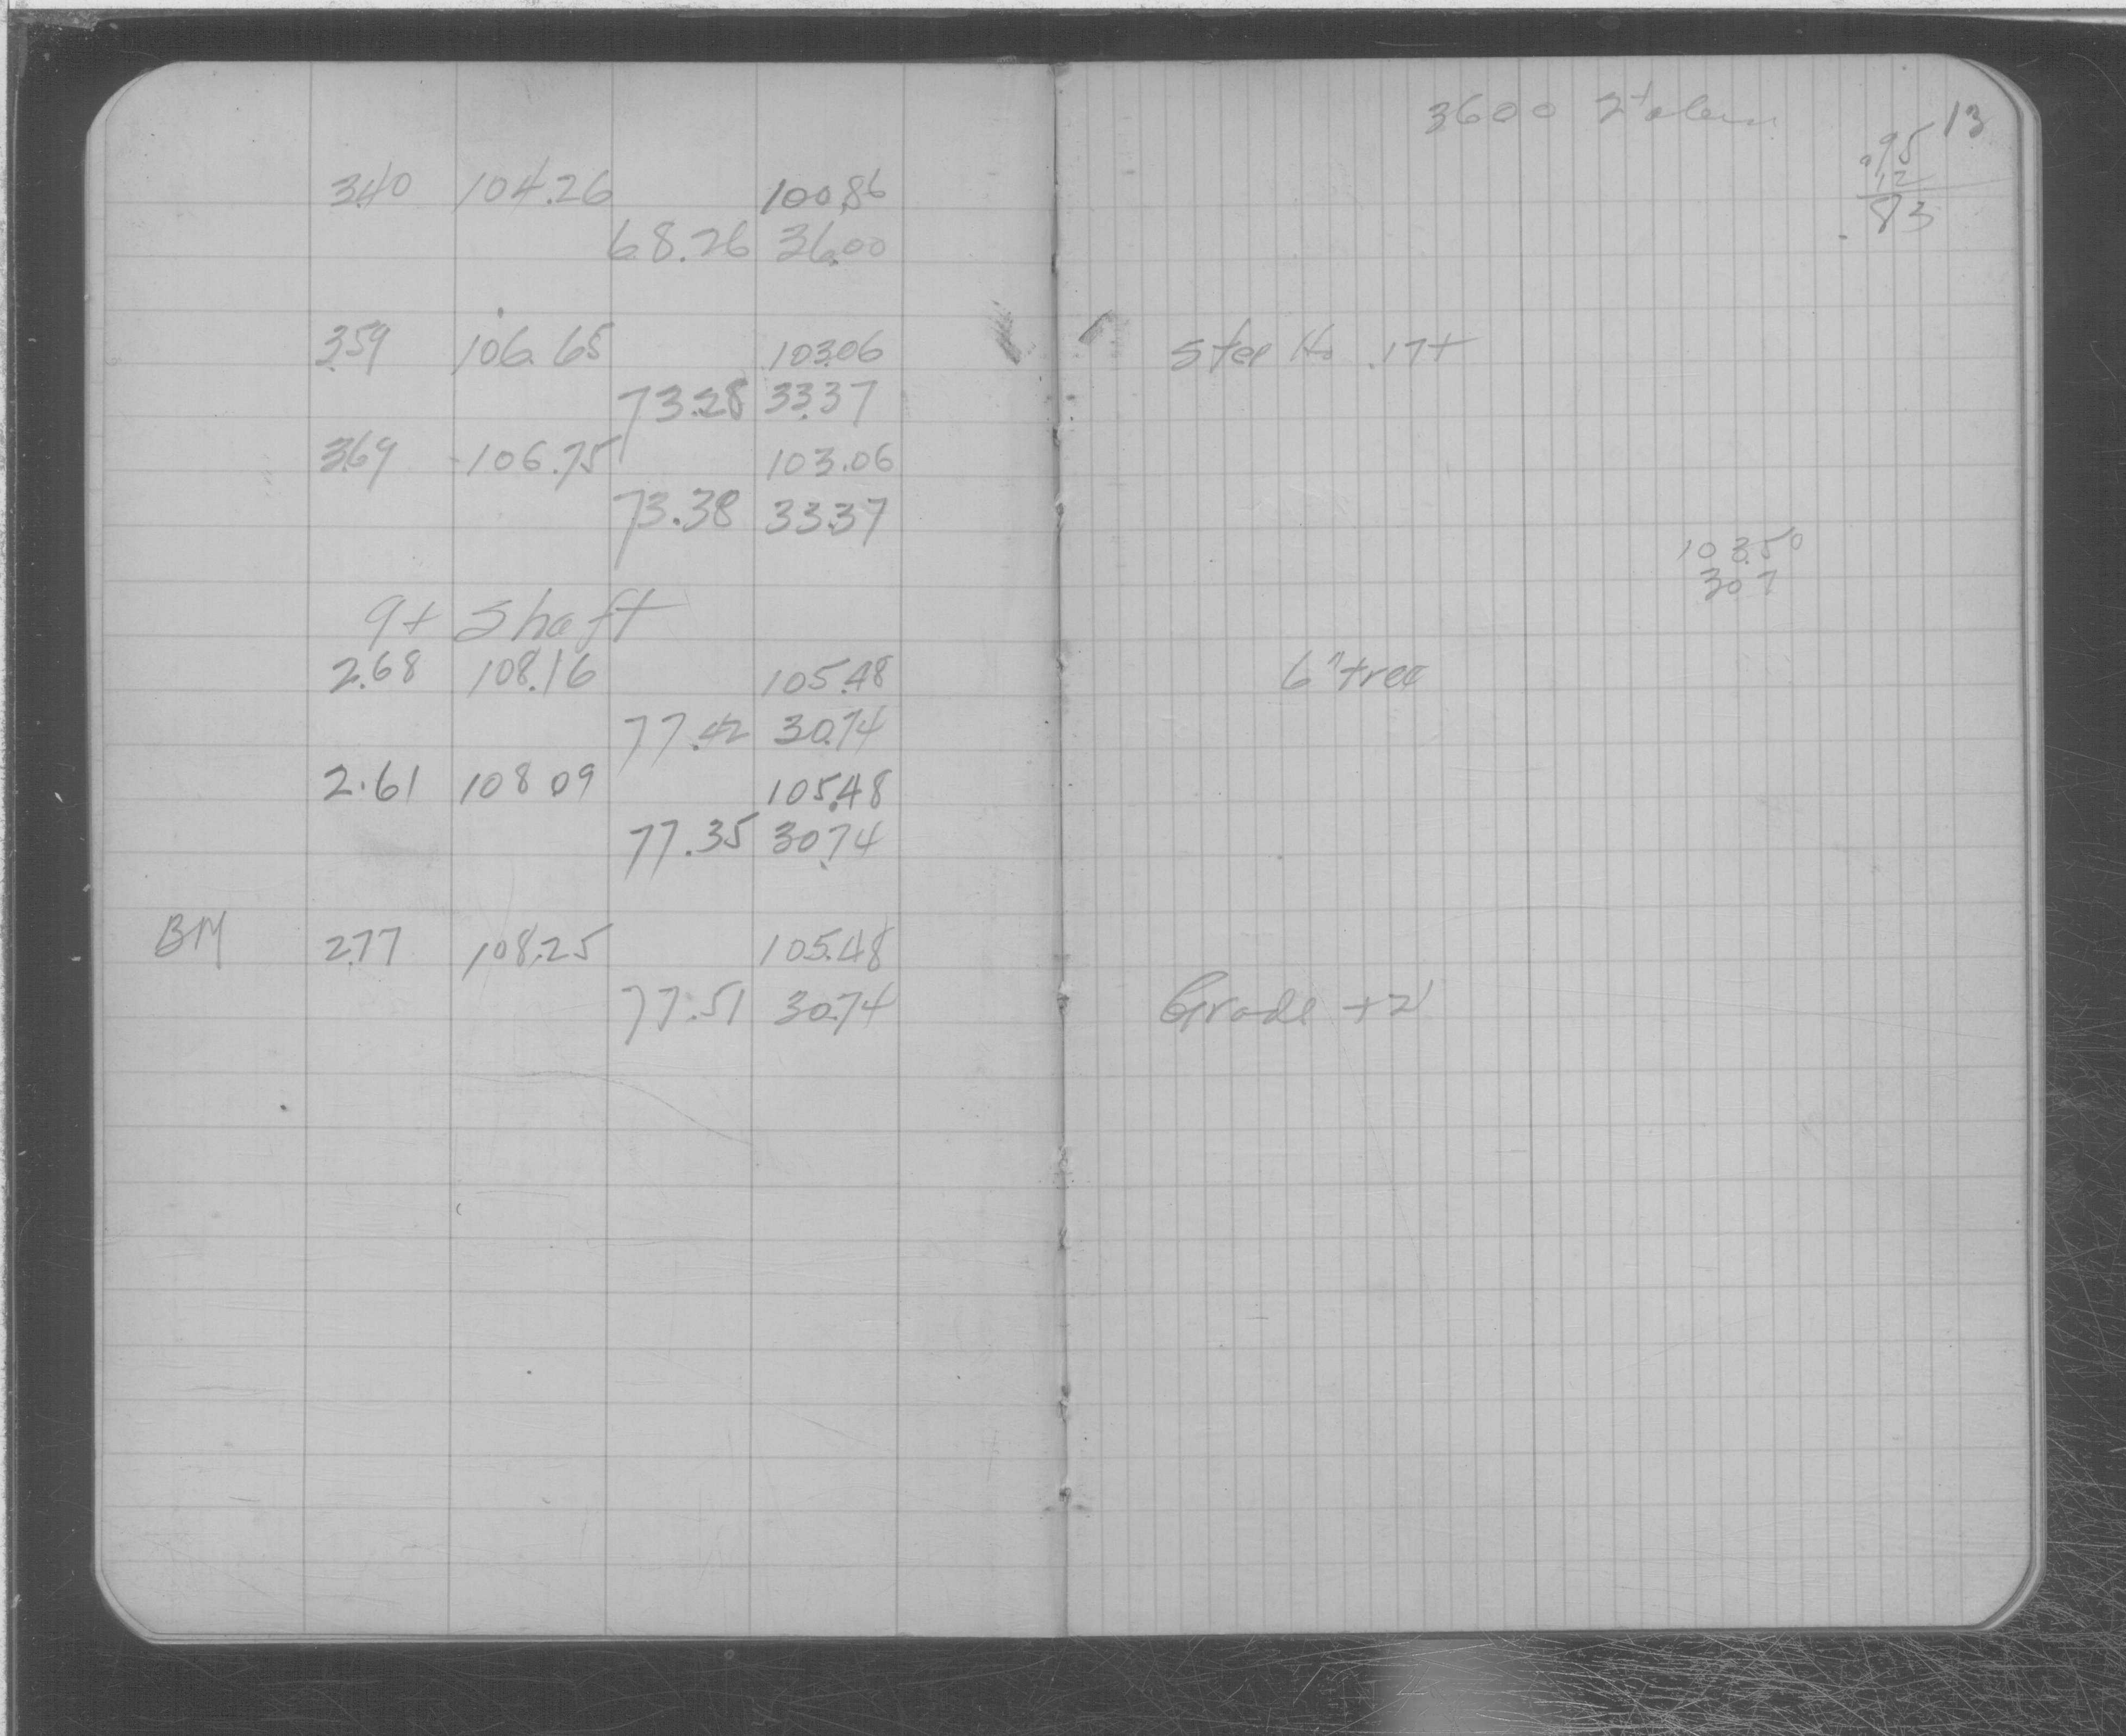 3.40 104.26 100.86
68.26 36.00
3.59 106.65 103.06
73.28 33.37
3.69 106.75 103.06
73.38 33.37
9+ Shaft
2.68 108.16 105.48
77.42 30.74
2.61 108 09 105.48
77.35 30.74
BM 2.77 108.25 105.48
77.51 30.74
3600
13
.95
.12
.83
.17+
103.50
307
6" tree
Grade +2'